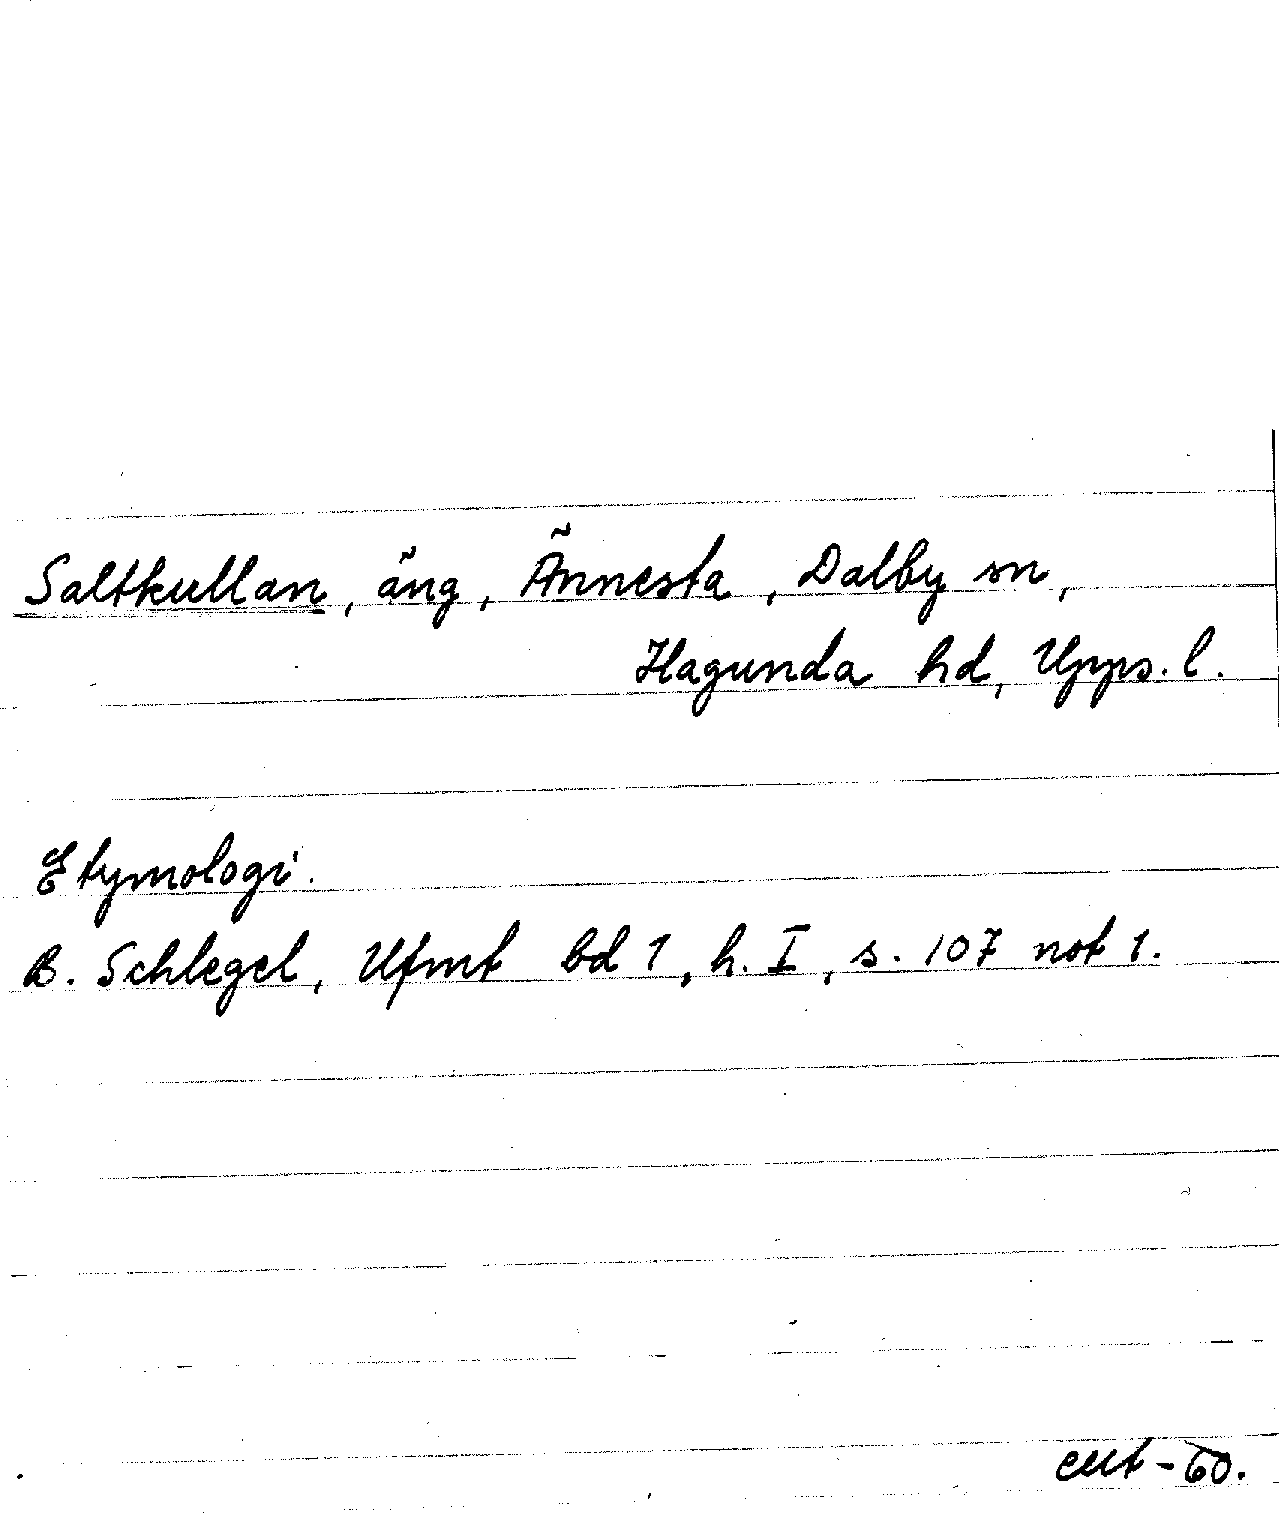 Saltkullan, äng, Ännesta, Dalby sn,
Hagunda hd, Upps. l.
Etymologi.
B. Schlegel, Ufmt bd 1, h. I, s. 107 not 1.
-60.